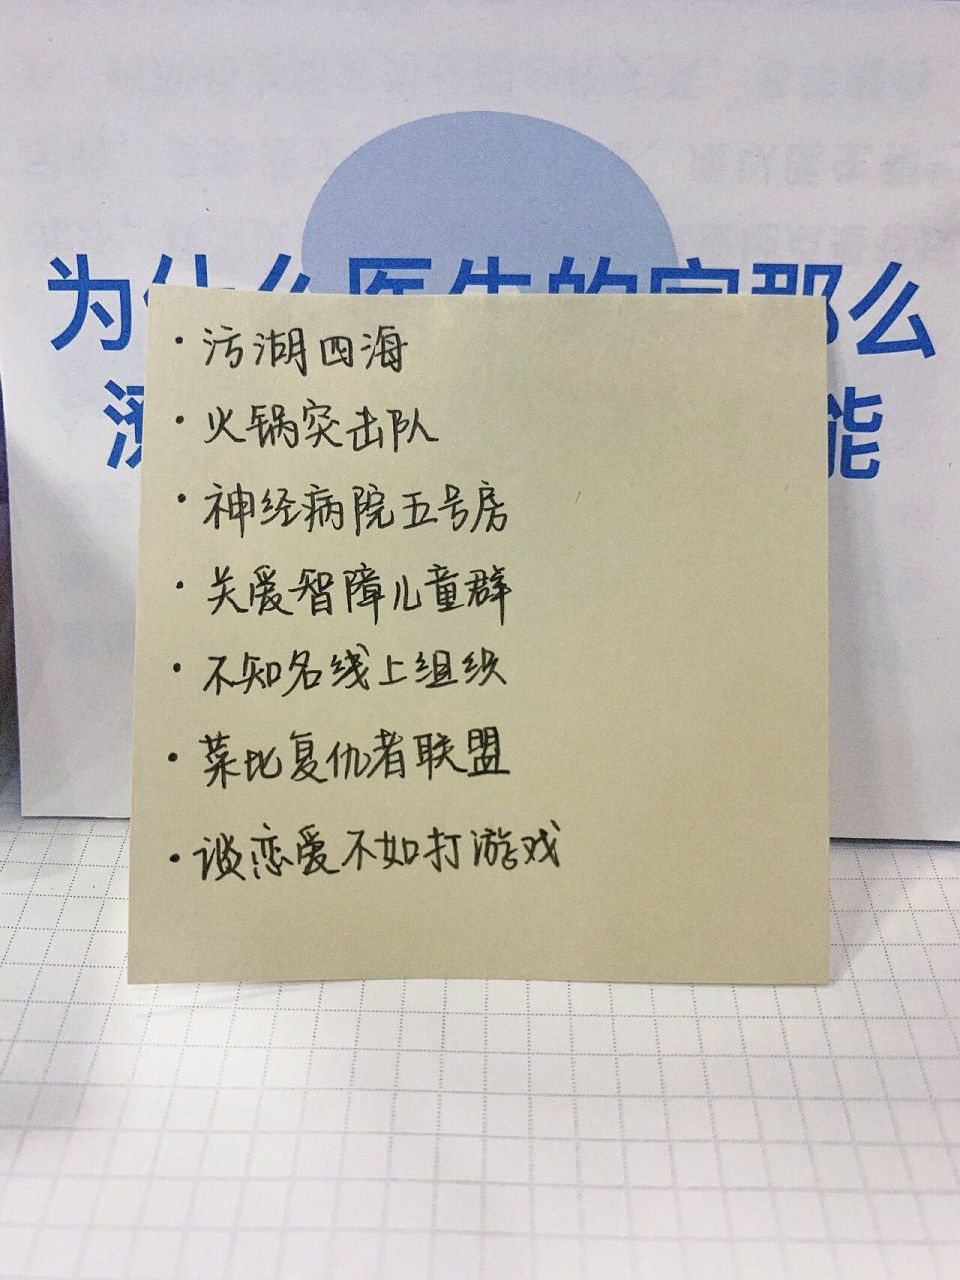 为什么医生的字那么
能
· 污湖四海
· 火锅突击队
· 神经病院五号房
· 关爱智障儿童群
· 不知名线上组织
· 菜比复仇者联盟
· 谈恋爱不如打游戏